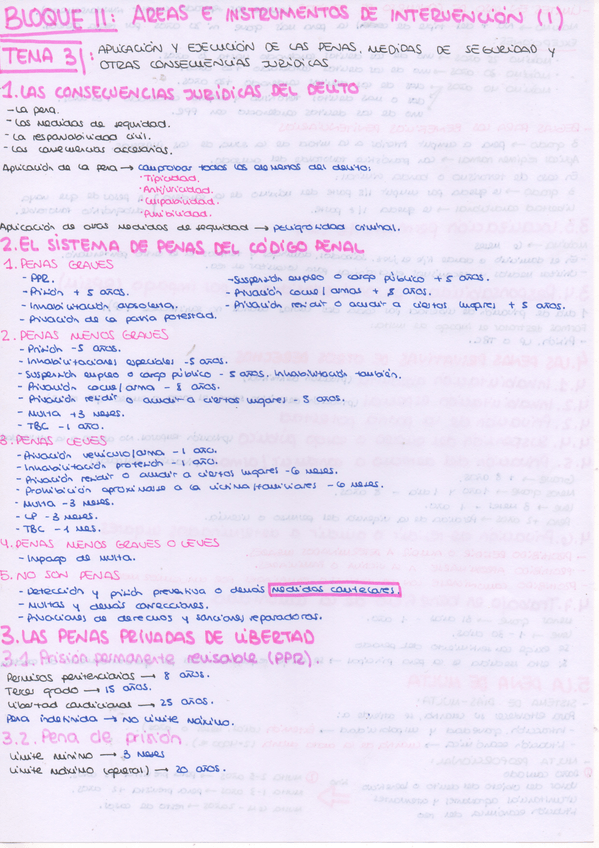 BLOQUE II: ÁREAS E INSTRUMENTOS DE INTERVENCIÓN (1)
TEMA 3: APLICACIÓN Y EJECUCIÓN DE LAS PENAS, MEDIDAS DE SEGURIDAD Y
OTRAS CONSECUENCIAS JURÍDICAS
1. LAS CONSECUENCIAS JURÍDICAS DEL DELITO
- La pena.
- Las medidas de seguridad.
- La responsabilidad civil.
- Las consecuencias accesorias.
Aplicación de la pena → comprobar todos los elementos del delito:
· Tipicidad.
· Antijuricidad.
· Culpabilidad.
· Punibilidad.
Aplicación de otras medidas de seguridad → peligrosidad criminal.
2. EL SISTEMA DE PENAS DEL CÓDIGO PENAL
1. PENAS GRAVES
- PPR. - Suspensión empleo o cargo público + 5 años.
- Prisión + 5 años. - Privación coche/armas + 8 años.
- Inhabilitación absoluta. - Privación residir o acudir a ciertos lugares + 5 años.
- Privación de la patria potestad.
2. PENAS MENOS GRAVES
- Prisión - 5 años.
- Inhabilitaciones especiales - 5 años.
- Suspensión empleo o cargo público - 5 años, inhabilitación también.
- Privación coche/arma - 8 años.
- Privación residir o acudir a ciertos lugares - 5 años.
- Multa + 3 meses.
- TBC - 1 año.
3. PENAS LEVES
- Privación vehículo/arma - 1 año.
- Inhabilitación profesión - 1 año.
- Privación residir o acudir a ciertos lugares - 6 meses.
- Prohibición aproximarse a la víctima/familiares - 6 meses.
- Multa - 3 meses.
- LP - 3 meses.
- TBC - 1 mes.
4. PENAS MENOS GRAVES O LEVES
- Impago de multa.
5. NO SON PENAS
- Detección y prisión preventiva o demás medidas cautelares.
- Multas y demás correcciones.
- Privaciones de derechos y sanciones reparadoras.
3. LAS PENAS PRIVADAS DE LIBERTAD
3.1. Prisión permanente revisable (PPR)
Permisos penitenciarios → 8 años.
Tercer grado → 15 años.
Libertad condicional → 25 años.
Pena indefinida → No límite máximo.
3.2. Pena de prisión
Límite mínimo → 3 meses
Límite máximo (general) → 20 años.